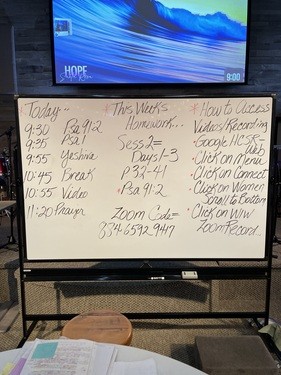 HOPE
9:00
Today..
9:30 Psa 91:2
9:35 Psa 1
9:55 Yeshua
10:45 Break
10:55 Video
11:20 Prayer
* This Week's
Homework...
Sess 2=
Days 1-3
P 32-41
*Psa 91:2
Zoom Code=
834-6592-9417
* How to Access
Videos/Recording
*Google HCSR=
Web
*Click on Menu
*Click on Connect
*Click on Women
Scroll to Bottom
*Click on WIW
Zoom Record.